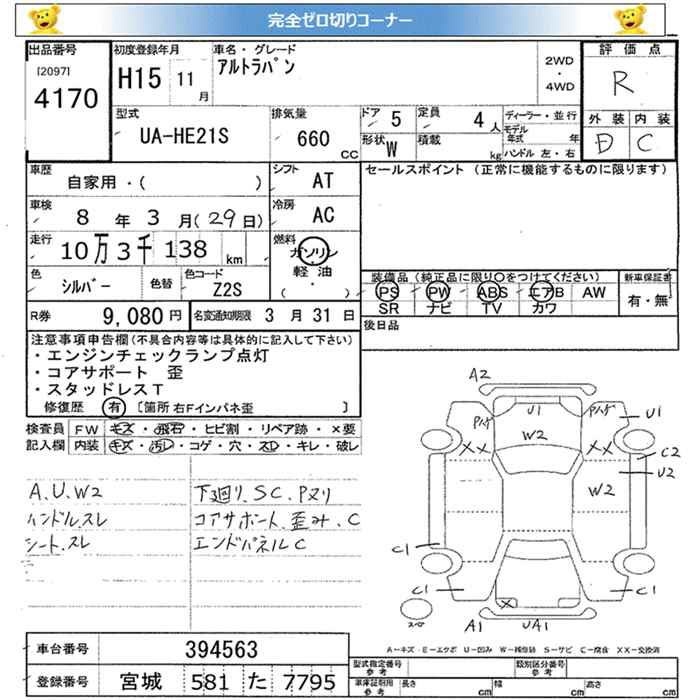 完全ゼロ切りコーナー
出品番号
[2097]
4170
初度登録年月
H15 11月
車名・グレード
アルトラパン
2WD
・
4WD
評価点
R
外装 内装
D C
型式
UA-HE21S
排気量
660 CC
ドア 5
形状 W
定員 4人
積載 kg
ディーラー・並行
モデル年式 年
ハンドル 左・右
車歴
自家用・( )
シフト AT
車検
8年3月(29日)
冷房 AC
走行
10万3千138 km
燃料
ガソリン
軽油
( )
色
シルバー 色替
色コード
Z2S
R券 9,080円
名変通知期限 3月31日
セールスポイント (正常に機能するものに限ります)
装備品 (純正品に限り○をつけてください)
PS PW ABS エアB AW
SR ナビ TV カワ
新車保証書
有・無
後日品
注意事項申告欄 (不具合内容等は具体的に記入して下さい)
・エンジンチェックランプ点灯
・コアサポート 歪
・スタッドレスT
修復歴 有 [箇所 右Fインパネ歪 ]
検査員 FW キズ・飛石・ヒビ割・リペア跡・×要
記入欄 内装 キズ・汚レ・コゲ・穴・スレ・キレ・破レ
A.U.W2
ハンドル.スレ
シート.スレ
下廻り.SC.Pヌリ
コアサポート.歪み.C
エンドパネルC
A2
U1
Pハゲ
Pハゲ
U1
W2
XX
XX
C2
U2
W2
C1
C1
C1
X
A1
UA1
スペ
A-キズ・E-エクボ U-凹み W-補修跡 S-サビ C-腐食 XX-交換済
車台番号 394563
登録番号 宮城 581 た 7795
型式指定番号 参考
類別区分番号 参考
車庫証明用 参考 長さ cm 幅 cm 高さ cm